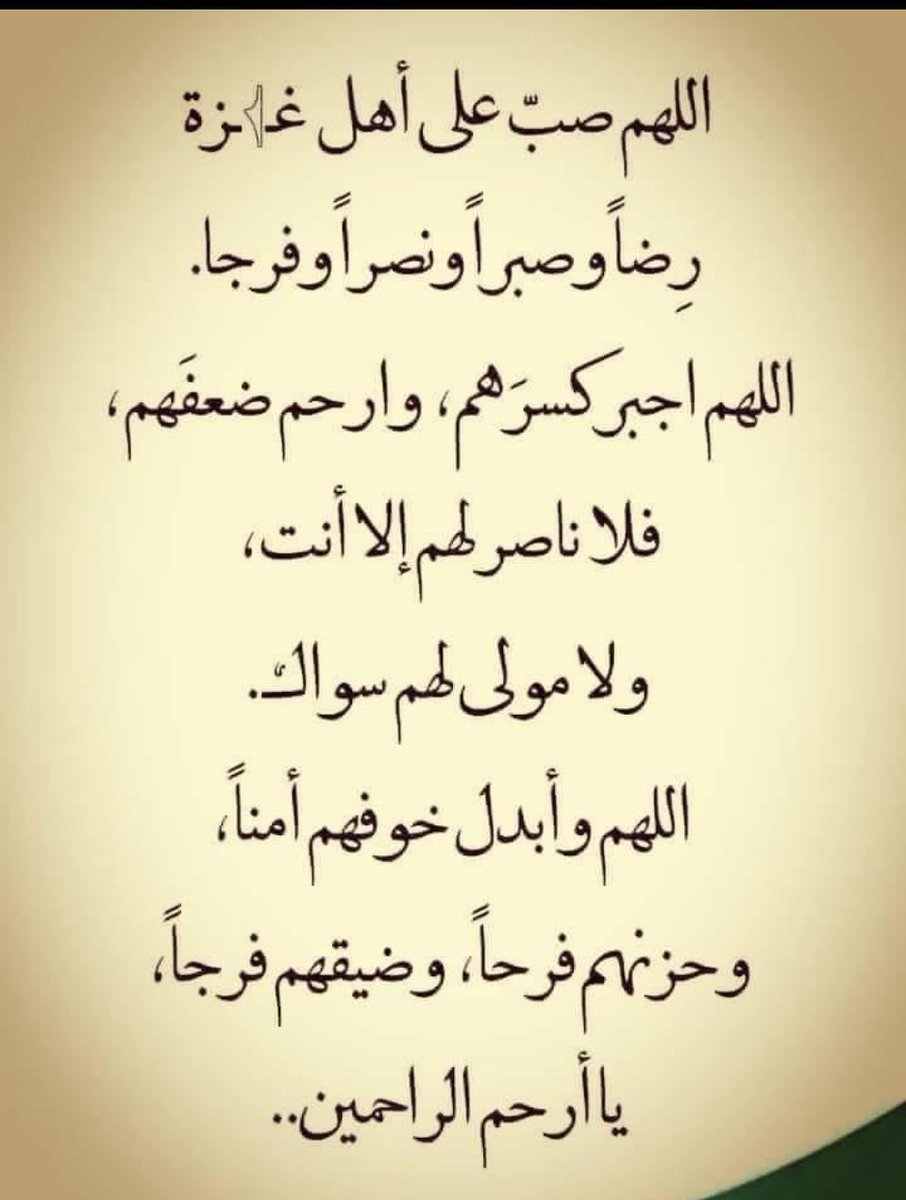 اللهم صبّ على أهل غـزة
رِضاً وصبراً ونصراً وفرجا.
اللهم اجبر كسرَهم، وارحم ضعفَهم،
فلا ناصر لهم إلا أنت،
ولا مولى لهم سواك.
اللهم وأبدل خوفهم أمناً،
وحزنهم فرحاً، وضيقهم فرجاً،
يا أرحم الراحمين..